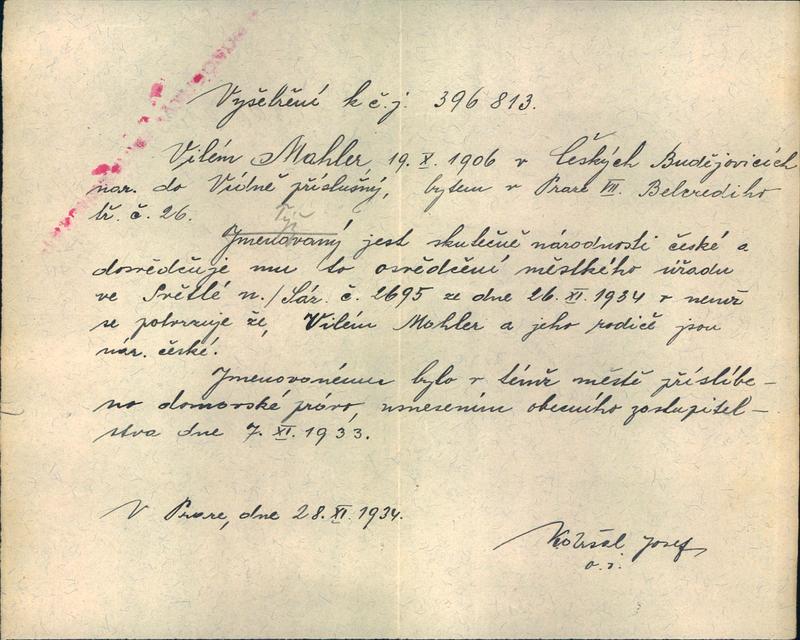 Vyšetření k č.j. 396 813.
Vilém Mahler, 19. X. 1906 v Českých Budějovicích
nar. do Vídně příslušný, bytem v Praze VII. Belcrediho
tř. č. 26.
Týž
Jmenovaný jest skutečně národnosti české a
dosvědčuje mu to osvědčení městkého úřadu
ve Světlé n./Sáz. č. 2695 ze dne 26. XI. 1934 v nemž
se potvrzuje že, Vilém Mahler a jeho rodiče jsou
nár. české.
Jmenovanému bylo v témž městě příslíbe-
no domovské právo, usnesením obecního zastupitel-
stva dne 7. XI. 1933.
V Praze, dne 28. XI. 1934.
Josef